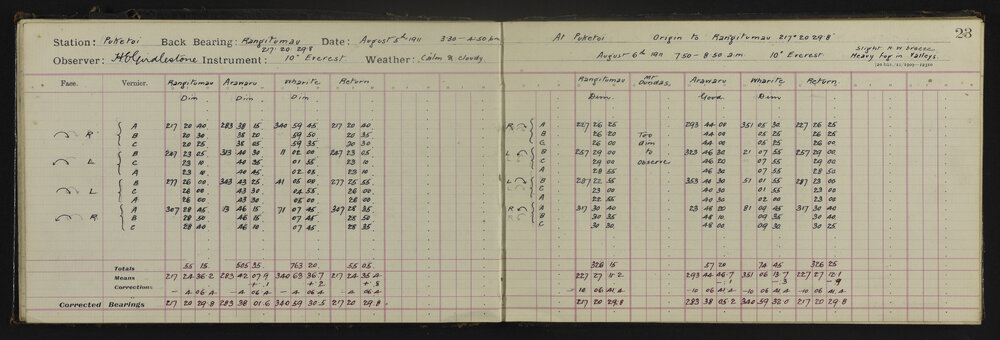 Station: Puketoi Back Bearing: Rangitumau Date: August 5th 1911 3.30 - 4.50 pm
217° 20' 29.8
Observer: Instrument: 10" Everest Weather: Calm & Cloudy
Face. Vernier. Rangitumau Arawaru Wharite Return
Dim Dim Dim
R A 217 20 40 283 38 15 340 59 45 217 20 40
B 20 30 38 20 59 50 20 35
C 20 25 38 05 59 35 20 30
L B 247 23 05 313 40 30 11 02 00 247 23 05
C 23 10 40 35 01 55 23 10
A 23 10 40 45 02 05 23 10
L B 277 26 00 343 43 25 41 05 00 277 25 55
C 26 00 43 30 04 55 26 00
A 26 00 43 30 05 00 26 00
R A 307 28 45 13 46 15 71 07 45 307 28 35
B 28 50 46 15 07 45 28 50
C 28 40 46 10 07 45 28 35
Totals 55 15 505 35 763 20 55 05
Means 217 24 36.2 283 42 07.9 340 63 36.7 217 24 35.4
Corrections + .1 + .2 + .8
- 4 06.4 - 4 06.4 - 4 06.4 - 4 06.4
Corrected Bearings 217 20 29.8 283 38 01.6 340 59 30.5 217 20 29.8
23
At Puketoi Origin to Rangitumau 217° 20' 29.8"
August 6th 1911 7.50 - 8.50 a.m 10" Everest
Slight N.W. breeze
Heavy fog in valleys.
Rangitumau Mt Dundas. Arawaru Wharite Return
Dim. Good Dim
R A 227 26 25 293 44 00 351 05 30 227 26 25
B 26 20 Too 44 00 05 25 26 25
C 26 00 dim 44 00 05 25 26 00
L B 257 29 00 to 323 46 30 21 07 55 257 29 00
C 29 00 observe 46 20 07 55 29 00
A 28 55 46 30 07 55 28 50
L B 287 22 55 353 40 30 51 01 55 287 23 00
C 23 00 40 30 01 55 23 00
A 22 55 40 30 01 55 22 55
R A 317 30 40 23 48 20 81 09 45 317 30 40
B 30 35 48 10 09 35 30 40
C 30 30 48 00 09 30 30 25
326 15 57 20 74 45 326 25
227 27 11.2 293 44 46.7 351 06 13.7 227 27 12.1
- .1 - .3 - .9
- 10 06 41.4 - 10 06 41.4 - 10 06 41.4 - 10 06 41.4
217 20 29.8 283 38 05.2 340 59 32.0 217 20 29.8